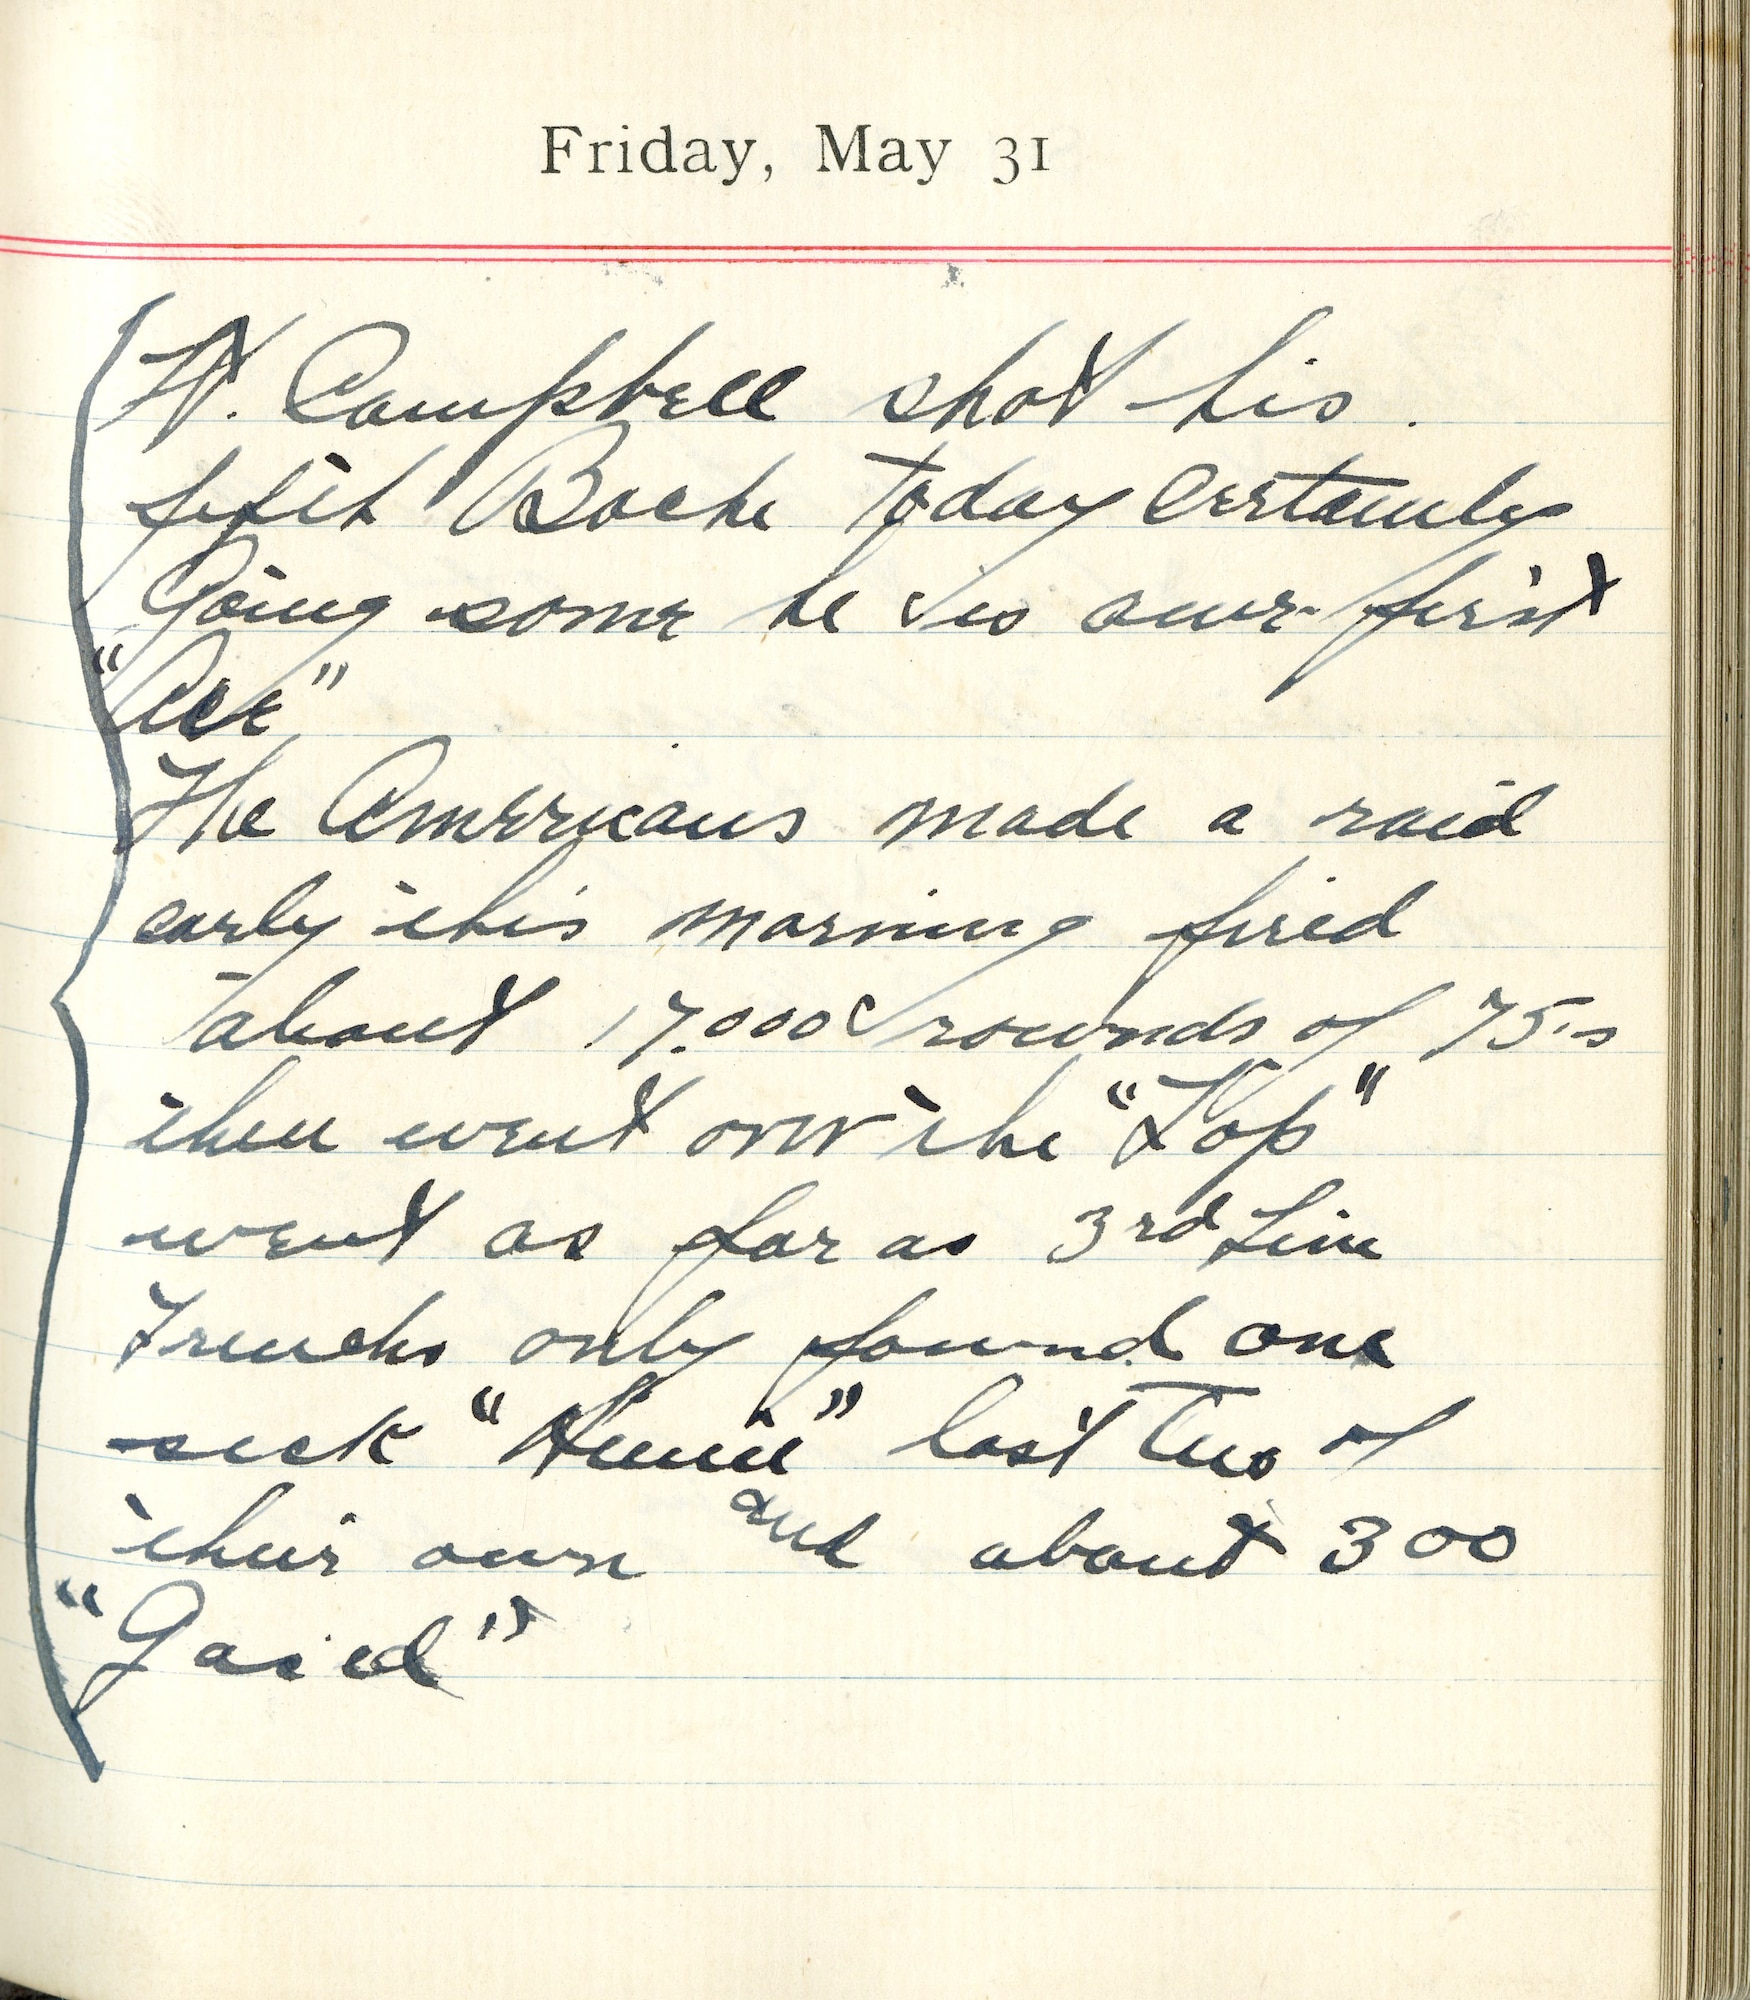 Friday, May 31
Lt. Campbell shot his
fifth Boche Today Certainly
Going some he is our first
"Ace"
The Americans made a raid
early this morning fired
about 17.000 rounds of 75s
then went over the "Top"
went as far as 3rd Line
Trenchs only found one
sick "Hunie" lost Two of
their own and about 300
"Gased"